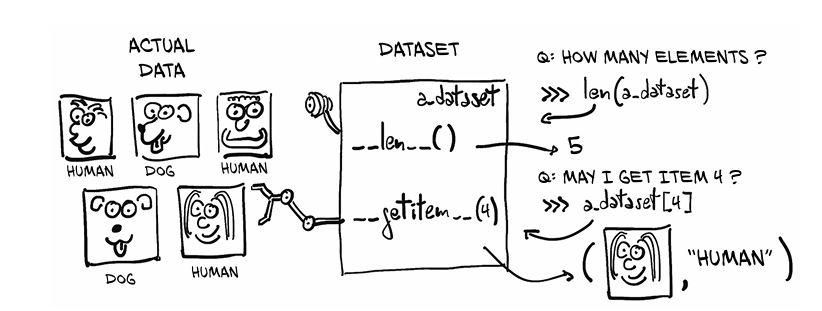 ACTUAL
DATA
HUMAN
DOG
HUMAN
DOG
HUMAN
DATASET
a_dataset
__len__()
__getitem__(4)
Q: HOW MANY ELEMENTS?
>>> len(a_dataset)
5
Q: MAY I GET ITEM 4?
>>> a_dataset[4]
( , "HUMAN")